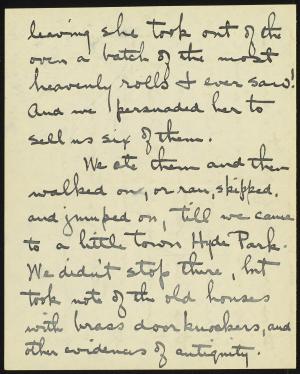 leaving she took out of the
oven a batch of the most
heavenly rolls I ever saw!
And we persuaded her to
sell us six of them.
We ate them and then
walked on, or ran, skipped,
and jumped on, till we came
to a little town Hyde Park.
We didn't stop there, but
took note of the old houses
with brass door knockers, and
other evidences of antiquity.